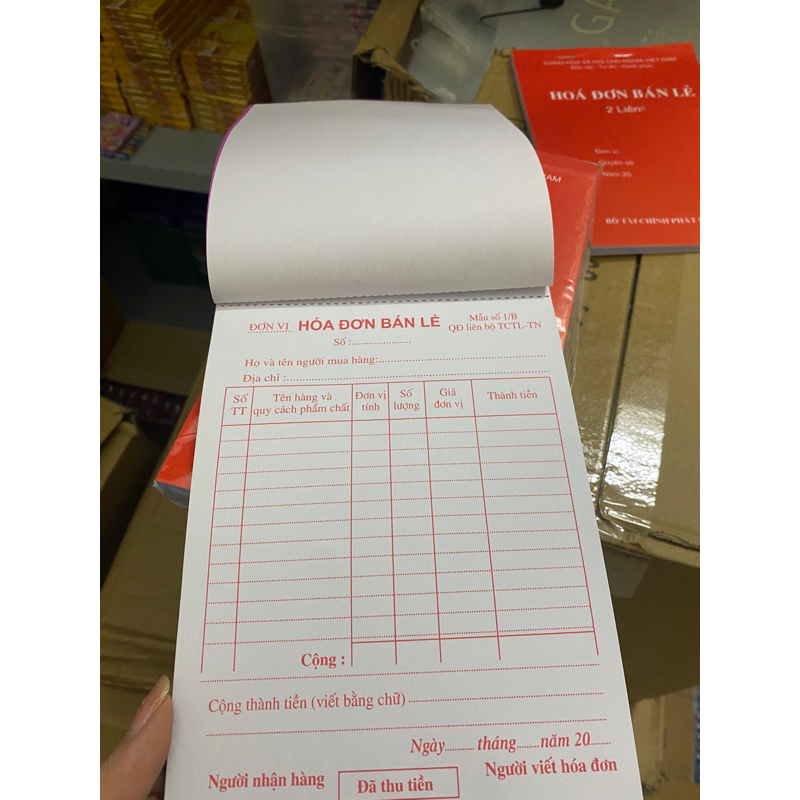 CỘNG HÒA XÃ HỘI CHỦ NGHĨA VIỆT NAM
HOÁ ĐƠN BÁN LẺ
2 Liên
Đơn vị:
Quyển số:
Năm 20
BỘ TÀI CHÍNH PHÁT
NAM
ĐƠN VỊ HÓA ĐƠN BÁN LẺ Mẫu số 1/B
QĐ liên bộ TCTL-TN
Số :....................
Họ và tên người mua hàng:..................................................
Địa chỉ :..................................................
Số TT
Tên hàng và quy cách phẩm chất
Đơn vị tính
Số lượng
Giá đơn vị
Thành tiền
Cộng :
Cộng thành tiền (viết bằng chữ)..................................................
Ngày.......... tháng........năm 20.......
Người nhận hàng Đã thu tiền Người viết hóa đơn